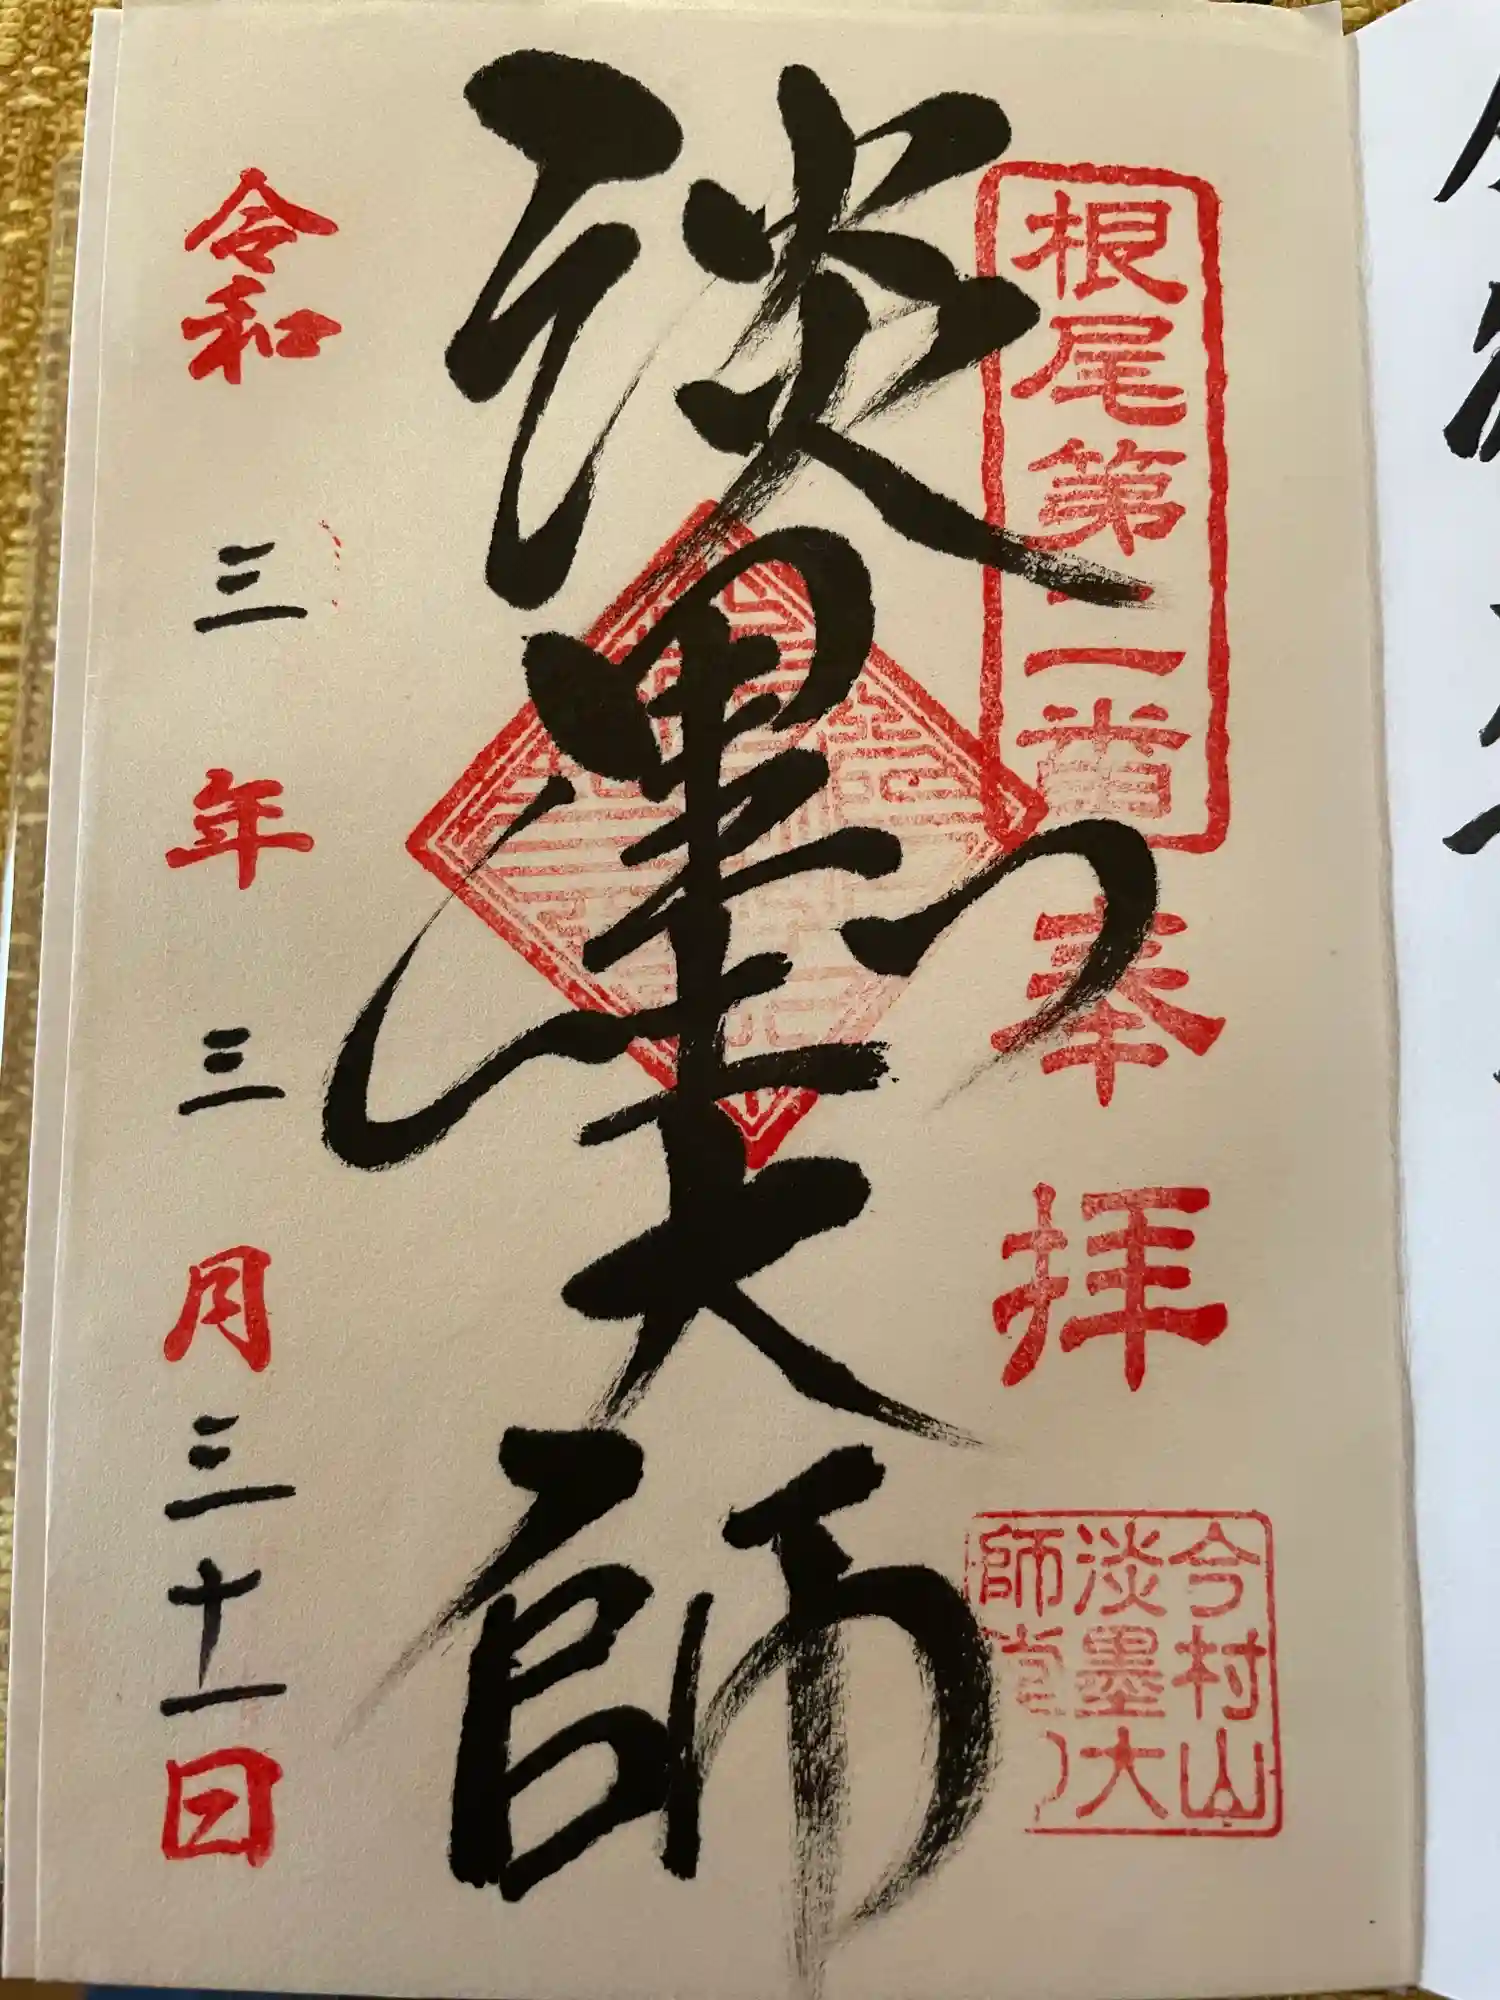 根尾第二番
奉拝
淡墨大師
今村山
淡墨大
師
令和三年三月三十一日